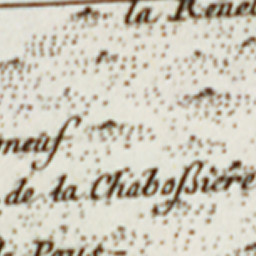 la Renel
neuf
de la Chaboſsiere